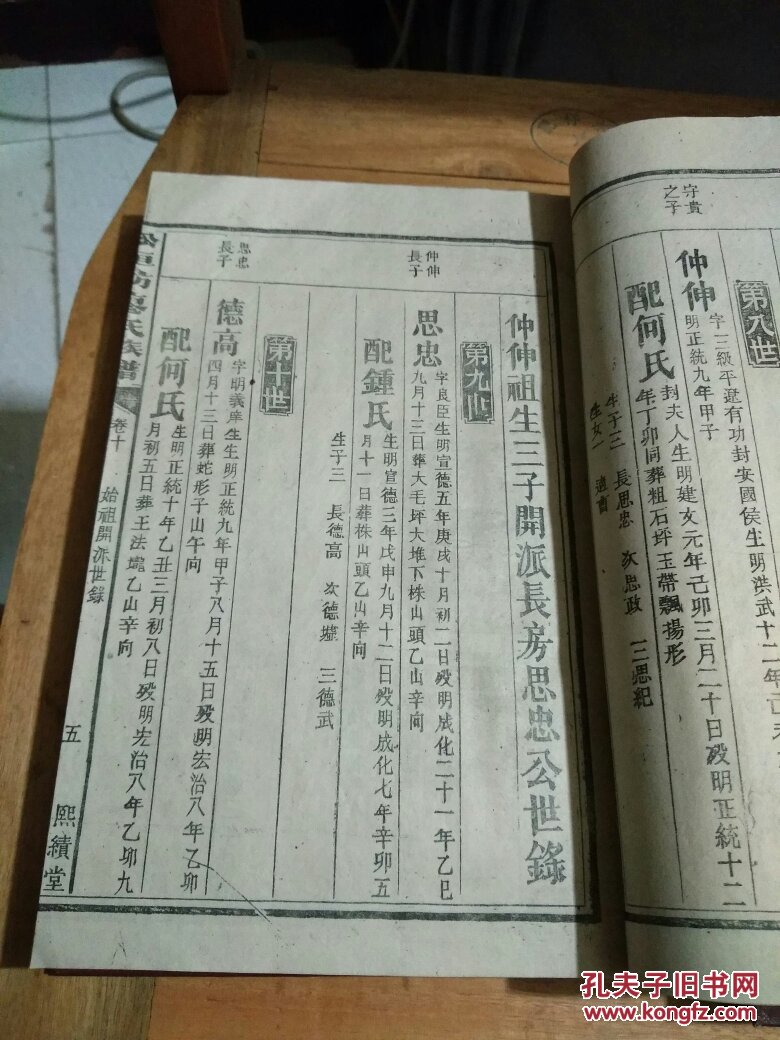 第八世
字貴
之子
仲伸
字三級平遼有功封安國侯生明洪武十二年己未
明正統九年甲子
配何氏
封夫人生明建文元年己卯三月二十日歿明正統十二
年丁卯同葬粗石坪玉帶飄揚形
生子三 長思忠 次思政 三思紀
生女一 適曹
仲伸祖生三子開派長房思忠公世錄
第九世
仲伸
長子
思忠
字良臣生明宣德五年庚戌十月初二日歿明成化二十一年乙巳
九月十三日葬大毛坪大堆下株山頭乙山辛向
配鍾氏
生明宣德三年戊申九月十二日歿明成化七年辛卯五
月十一日葬株山頭乙山辛向
生子三 長德高 次德墀 三德武
第十世
思忠
長子
德高
字明義庠生生明正統九年甲子八月十五日歿明宏治八年乙卯
四月十三日葬蛇形子山午向
配何氏
生明正統十年乙丑三月初八日歿明宏治八年乙卯九
月初五日葬王法壠乙山辛向
氏族譜 卷十 始祖開派世錄 五 熙績堂
孔夫子旧书网
www.kongfz.com